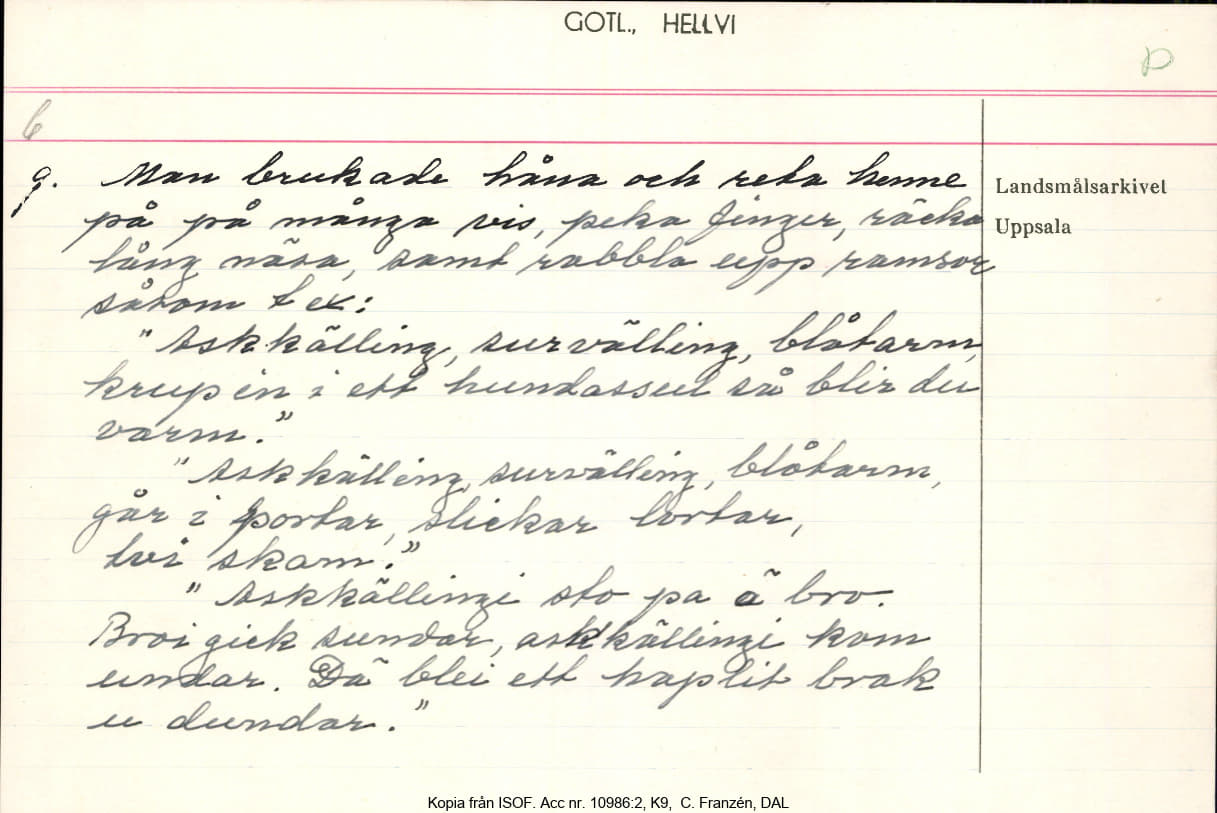 GOTL., HELLVI
D
6
g. Man brukade håna och reta henne
på på många vis, peka finger, räcka
lång näsa, samt rabbla upp ramsor
såsom t ex:
"Askkälling, survälling, blåtarm,
krup in i ett hundassul så blir du
varm."
"Askkälling, survälling, blåtarm,
går i portar, slickar lortar,
tvi skam."
"Askkällingi sto pa ä bro.
Broi gick sundar, askkällingi kom
undar. Dä blei ett haplit brak
u dundar."
Landsmålsarkivet
Uppsala
Kopia från ISOF. Acc nr. 10986:2, K9, C. Franzén, DAL